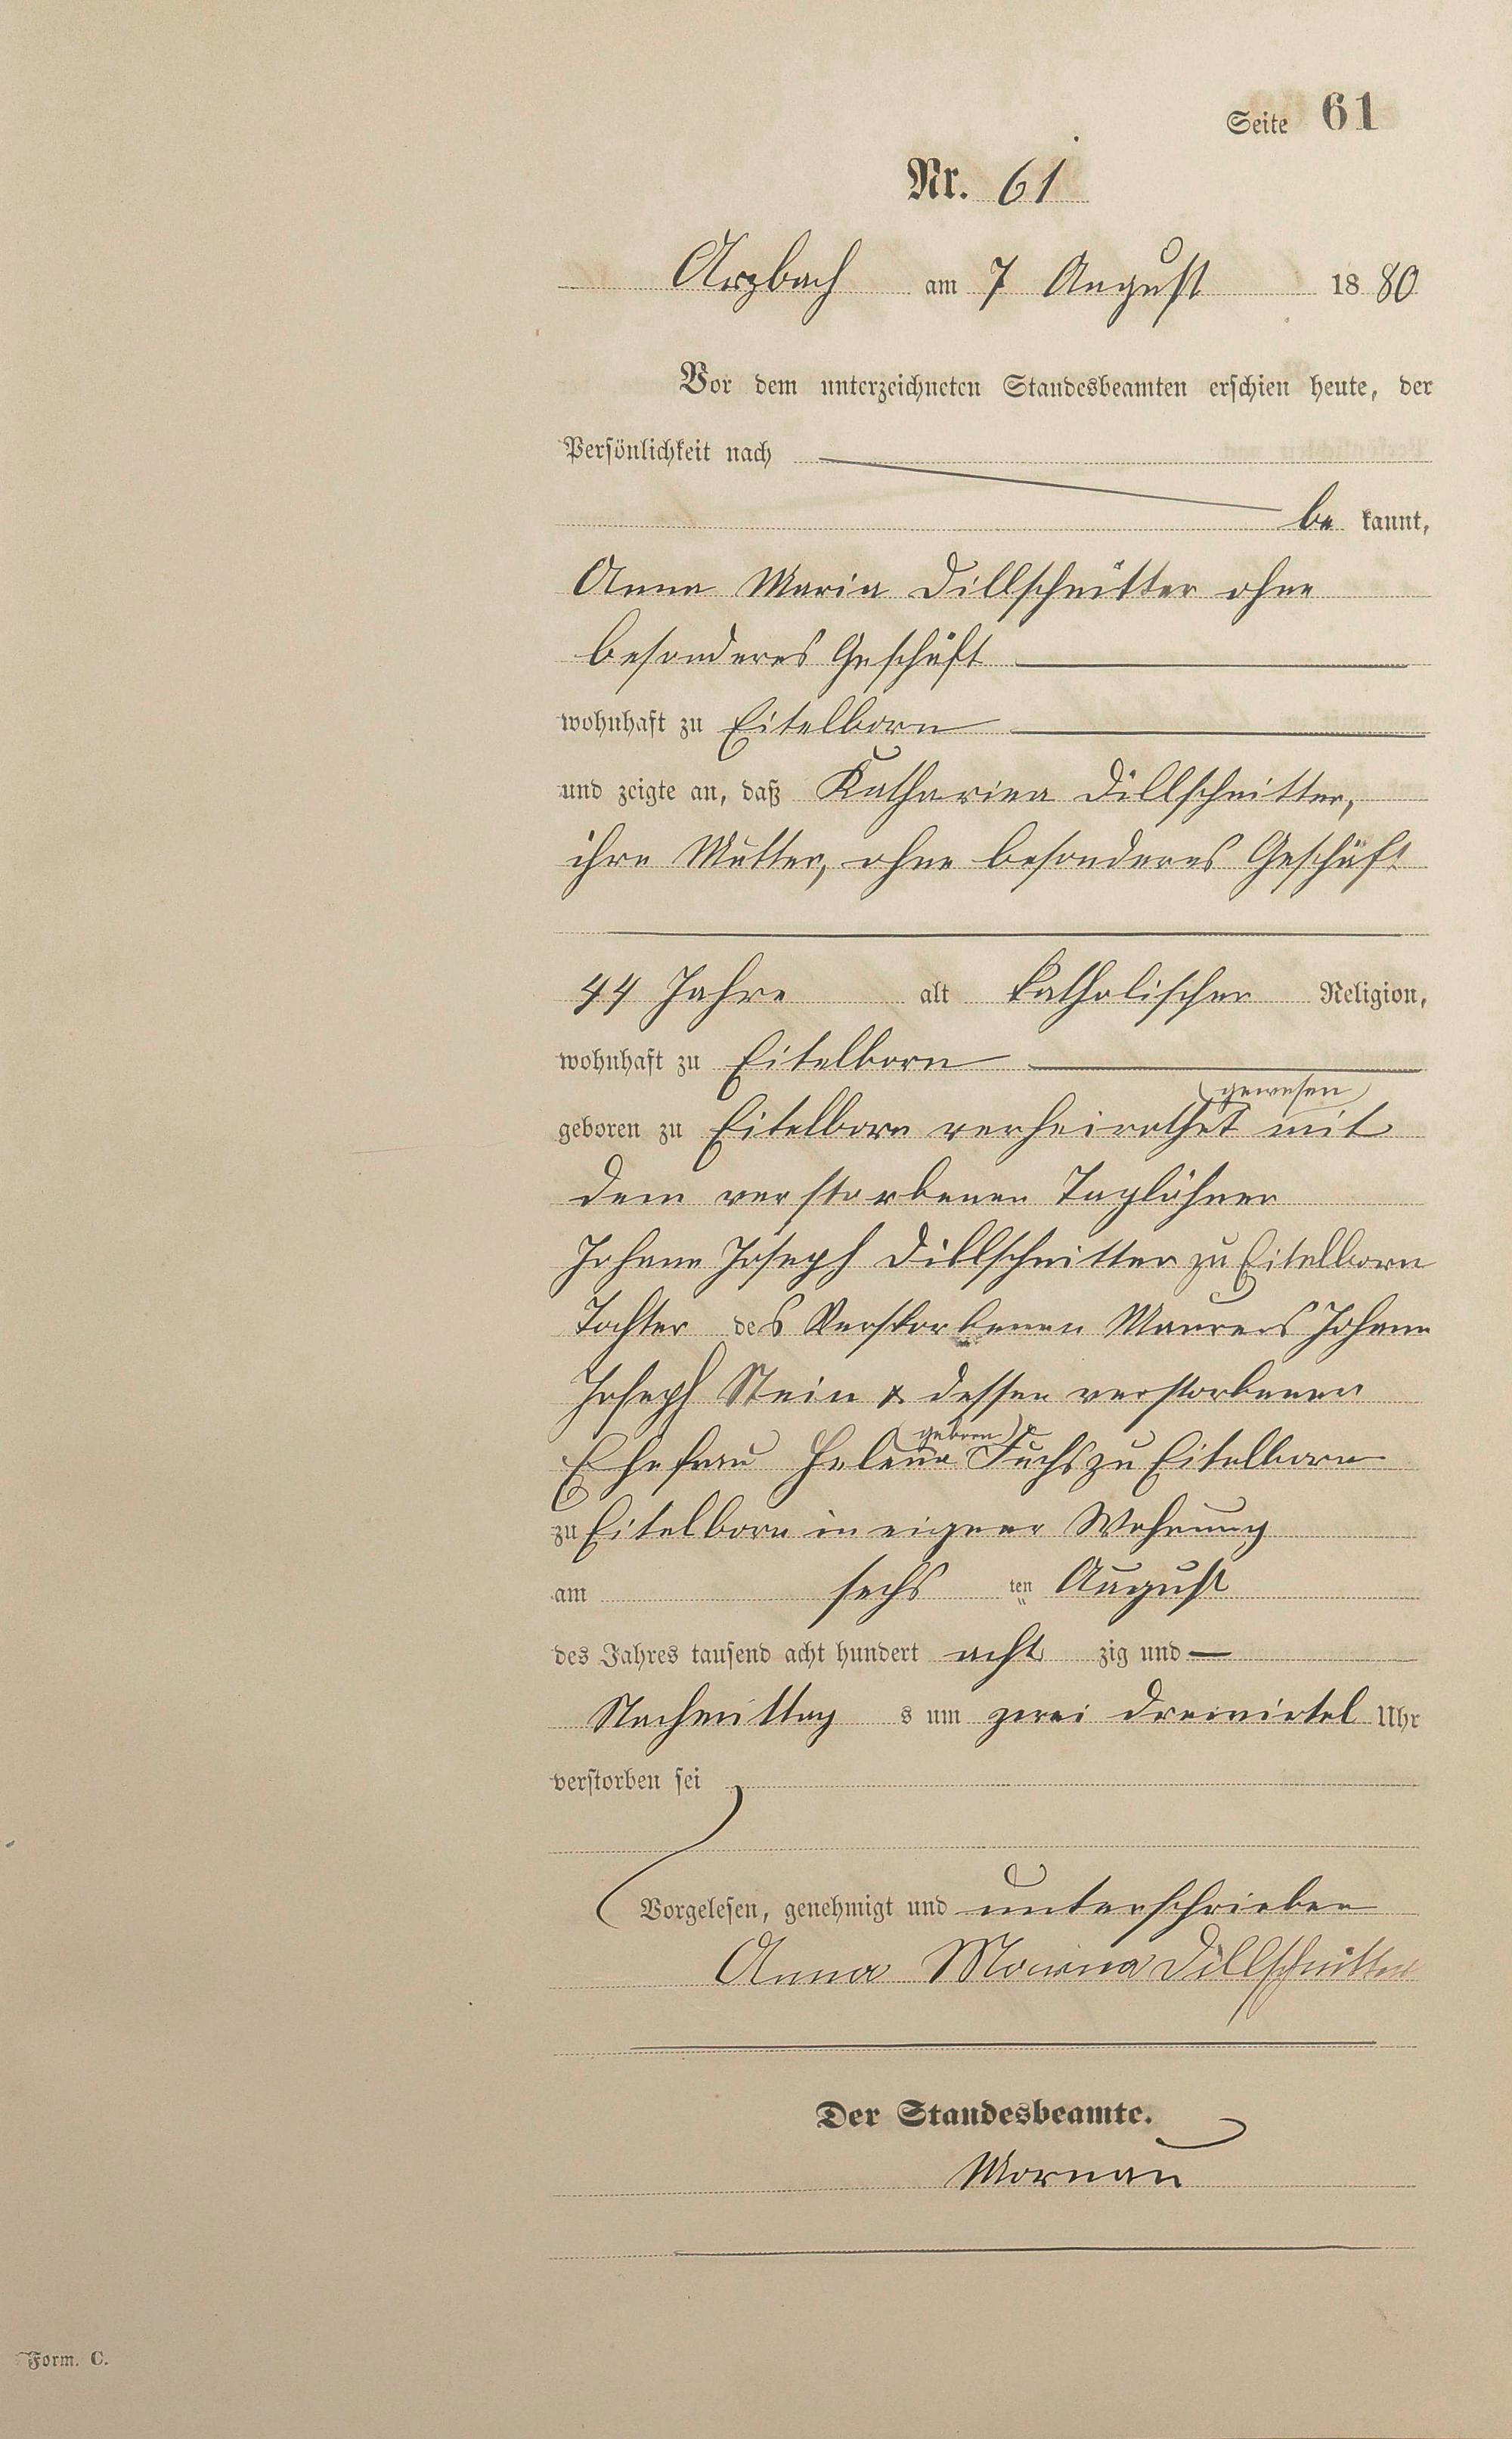 Seite 61
Nr. 61
Arzbach am 7 August 1880
Vor dem unterzeichneten Standesbeamten erschien heute, der
Persönlichkeit nach
be kannt,
Anna Maria Dillschnitter ohne
besonderes Geschäft
wohnhaft zu Eitelborn
und zeigte an, daß Katharina Dillschnitter,
ihre Mutter, ohne besonderes Geschäft
44 Jahre alt katholischer Religion,
wohnhaft zu Eitelborn
gewesen
geboren zu Eitelborn verheirathet mit
dem verstorbenen Taglöhner
Johann Joseph Dillschnitter zu Eitelborn
Tochter des Verstorbenen Maurers Johann
Joseph Stein & dessen verstorbenen
geboren
Ehefrau Helena Fuchs zu Eitelborn
zu Eitelborn in eigener Wohnung
am sechs ten August
des Jahres tausend acht hundert acht zig und —
Nachmittag s um zwei dreivirtel Uhr
verstorben sei
Vorgelesen, genehmigt und unterschrieben
Anna Maria Dillschnitter
Der Standesbeamte.
Mornau
Form. C.